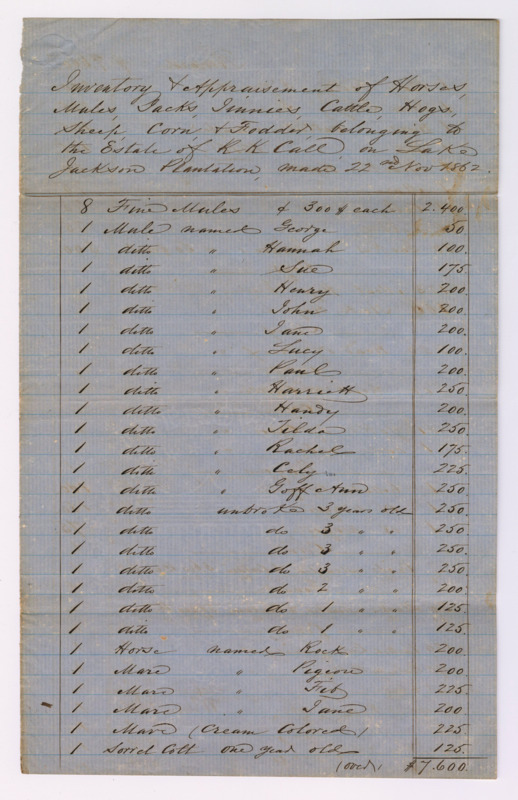 Inventory & Appraisement of Horses,
Mules, Jacks, Jinnies, Cattle, Hogs,
Sheep, Corn & Fodder, belonging to
the Estate of R K Call on Lake
Jackson Plantation, made 22nd Nov 1862.
8 Fine Mules @ 300$ each 2.400
1 Mule named George 50
1 ditto " Hannah 100.
1 ditto " Sue 175.
1 ditto " Henry 200.
1 ditto " John 200.
1 ditto " Jane 200.
1 ditto " Lucy 100.
1 ditto " Paul 200.
1 ditto " Harriett 250.
1 ditto " Handy 200.
1 ditto " Tilda 250.
1 ditto " Rachel 175.
1 ditto " Cely 225.
1 ditto " Goff Ann 250.
1 ditto unbroke 3 years old 250.
1 ditto do 3 " " 250.
1 ditto do 3 " " 250.
1 ditto do 3 " " 250.
1 ditto do 2 " " 200.
1 ditto do 1 " " 125.
1 ditto do 1 " " 125.
1 Horse named Rock 200.
1 Mare " Pigeon 200
1 Mare " Fib 225.
1 Mare " Jane 200
1 Mare (Cream Colored) 225
1 Sorrel Colt one year old 125.
(over) $7.600.